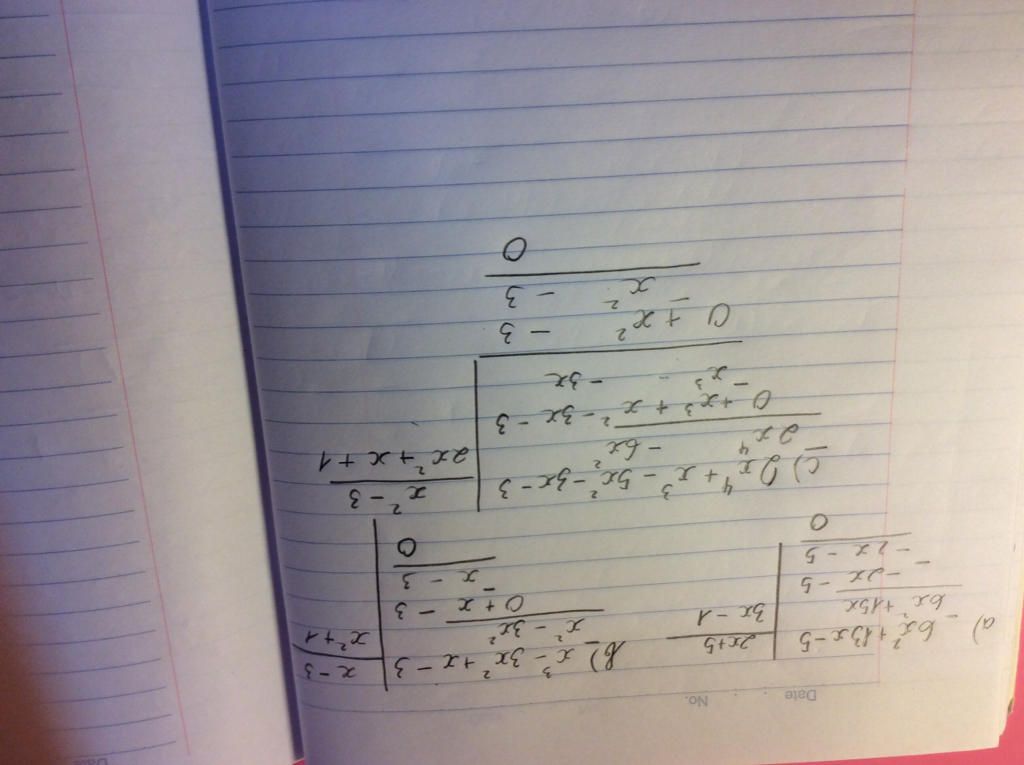 Date . . No.
a) 6x² + 13x - 5 | 2x+5
- 6x² + 15x | 3x - 1
- 2x - 5
- - 2x - 5
0
b) x³ - 3x² + x - 3 | x - 3
- x² - 3x² | x² + 1
0 + x - 3
- x - 3
0
c) 2x⁴ + x³ - 5x² - 3x - 3 | x² - 3
- 2x⁴ - 6x² | 2x² + x + 1
0 + x³ + x² - 3x - 3
- x³ - 3x
0 + x² - 3
- x² - 3
0
Date